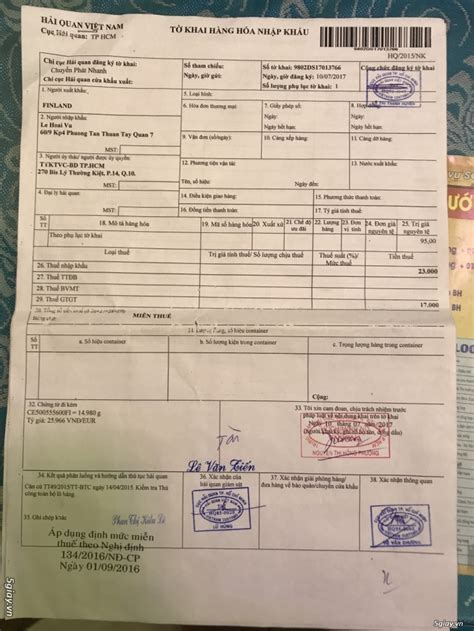 HẢI QUAN VIỆT NAM
Cục Hải quan: TP HCM
TỜ KHAI HÀNG HÓA NHẬP KHẨU
HQ/2015/NK
Chi cục Hải quan đăng ký tờ khai
Chuyển Phát Nhanh
Chi cục Hải quan cửa khẩu xuất:
Số tham chiếu:
Ngày, giờ gửi:
Số tờ khai: 9802DS17013766
Ngày, giờ đăng ký: 10/07/2017
Số lượng phụ lục tờ khai: 1
Công chức đăng ký tờ khai
1. Người xuất khẩu:
FINLAND
2. Người nhập khẩu
Le Hoai Vu
60/9 Kp4 Phuong Tan Thuan Tay Quan 7
MST:
3. Người ủy thác/ người được ủy quyền
TTKTVC-BD TP.HCM
270 Bis Lý Thường Kiệt, P.14, Q.10.
MST:
4. Đại lý hải quan
MST:
5. Loại hình:
6. Hóa đơn thương mại:
7. Giấy phép số:
Ngày:
Ngày hết hạn:
8. Hợp đồng:
Ngày:
Ngày hết hạn:
9. Vận đơn (số/ngày):
10. Cảng xếp hàng:
11. Cảng dỡ hàng:
12. Phương tiện vận tải:
Tên, số hiệu:
Ngày đến:
13. Nước xuất khẩu:
14. Điều kiện giao hàng:
15. Phương thức thanh toán:
16. Đồng tiền thanh toán:
17. Tỷ giá tính thuế:
Số TT
18. Mô tả hàng hóa
19. Mã số hàng hóa
20. Xuất xứ
21. Chế độ ưu đãi
22. Lượng hàng
23. Đơn vị tính
24. Đơn giá nguyên tệ
25. Trị giá nguyên tệ
Theo phụ lục tờ khai
95,00
Loại thuế
Trị giá tính thuế/ Số lượng chịu thuế
Thuế suất (%)/ Mức thuế
Tiền thuế
26. Thuế nhập khẩu
23.000
27. Thuế TTĐB
28. Thuế BVMT
29. Thuế GTGT
17.000
MIỄN THUẾ
31. Lượng hàng, số hiệu container
Số TT
a. Số hiệu container
b. Số lượng kiện trong container
c. Trọng lượng hàng trong container
Cộng:
32. Chứng từ đi kèm
CE500555600FI = 14.980 g
Tỷ giá: 25,966 VNĐ/EUR
33. Tôi xin cam đoan, chịu trách nhiệm trước
pháp luật về nội dung khai trên tờ khai
Ngày 10 tháng 07 năm 2017
NGUYỄN THỊ HỒNG PHƯỢNG
Lê Văn Tiến
34. Kết quả phân luồng và hướng dẫn thủ tục hải quan
Căn cứ TT49/2015/TT-BTC ngày 14/04/2015 Kiểm tra Thủ
công toàn bộ lô hàng.
35. Ghi chép khác:
36. Xác nhận của
hải quan giám sát
LÊ HÙNG
37. Xác nhận giải phóng hàng/
đưa hàng về bảo quản/chuyển cửa khẩu
38. Xác nhận thông quan
Áp dụng định mức miễn
thuế theo Nghị định
134/2016/NĐ-CP
Ngày 01/09/2016
5giay.vn
5giay.vn